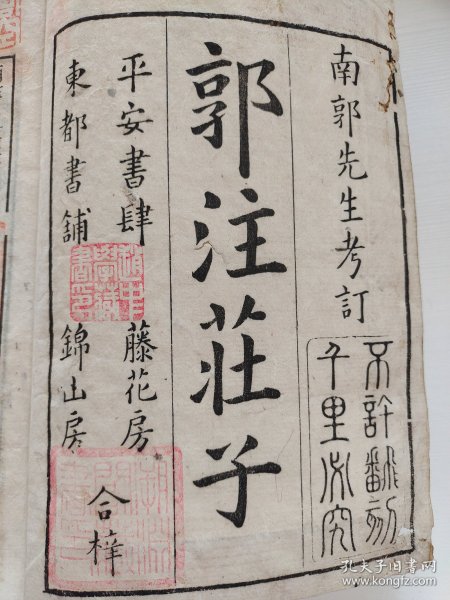 南郭先生考訂
不許翻刻
千里必究
郭注莊子
平安書肆 藤花房
東都書舖 錦山房
合梓
孔夫子旧书网
www.kongfz.com